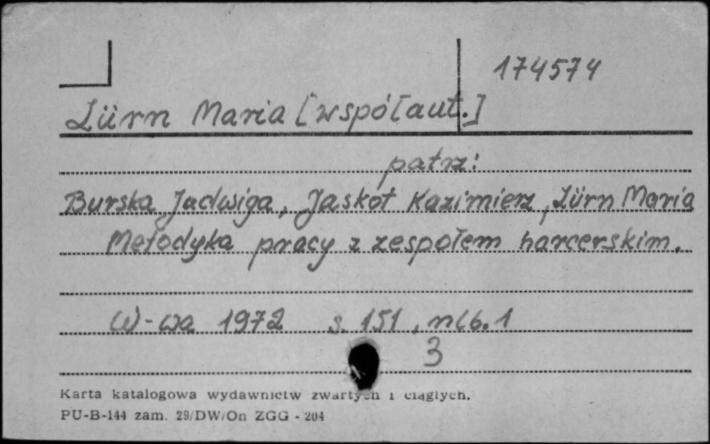 174574
Zürn Maria [współaut.]
patrz:
Burska Jadwiga, Jaskot Kazimierz, Zürn Maria
Metodyka pracy z zespołem harcerskim.
W-wa 1972 s. 151, nlb. 1
3
Karta katalogowa wydawnictw zwartych i ciągłych.
PU-B-144 zam. 29/DW/On ZGG - 204